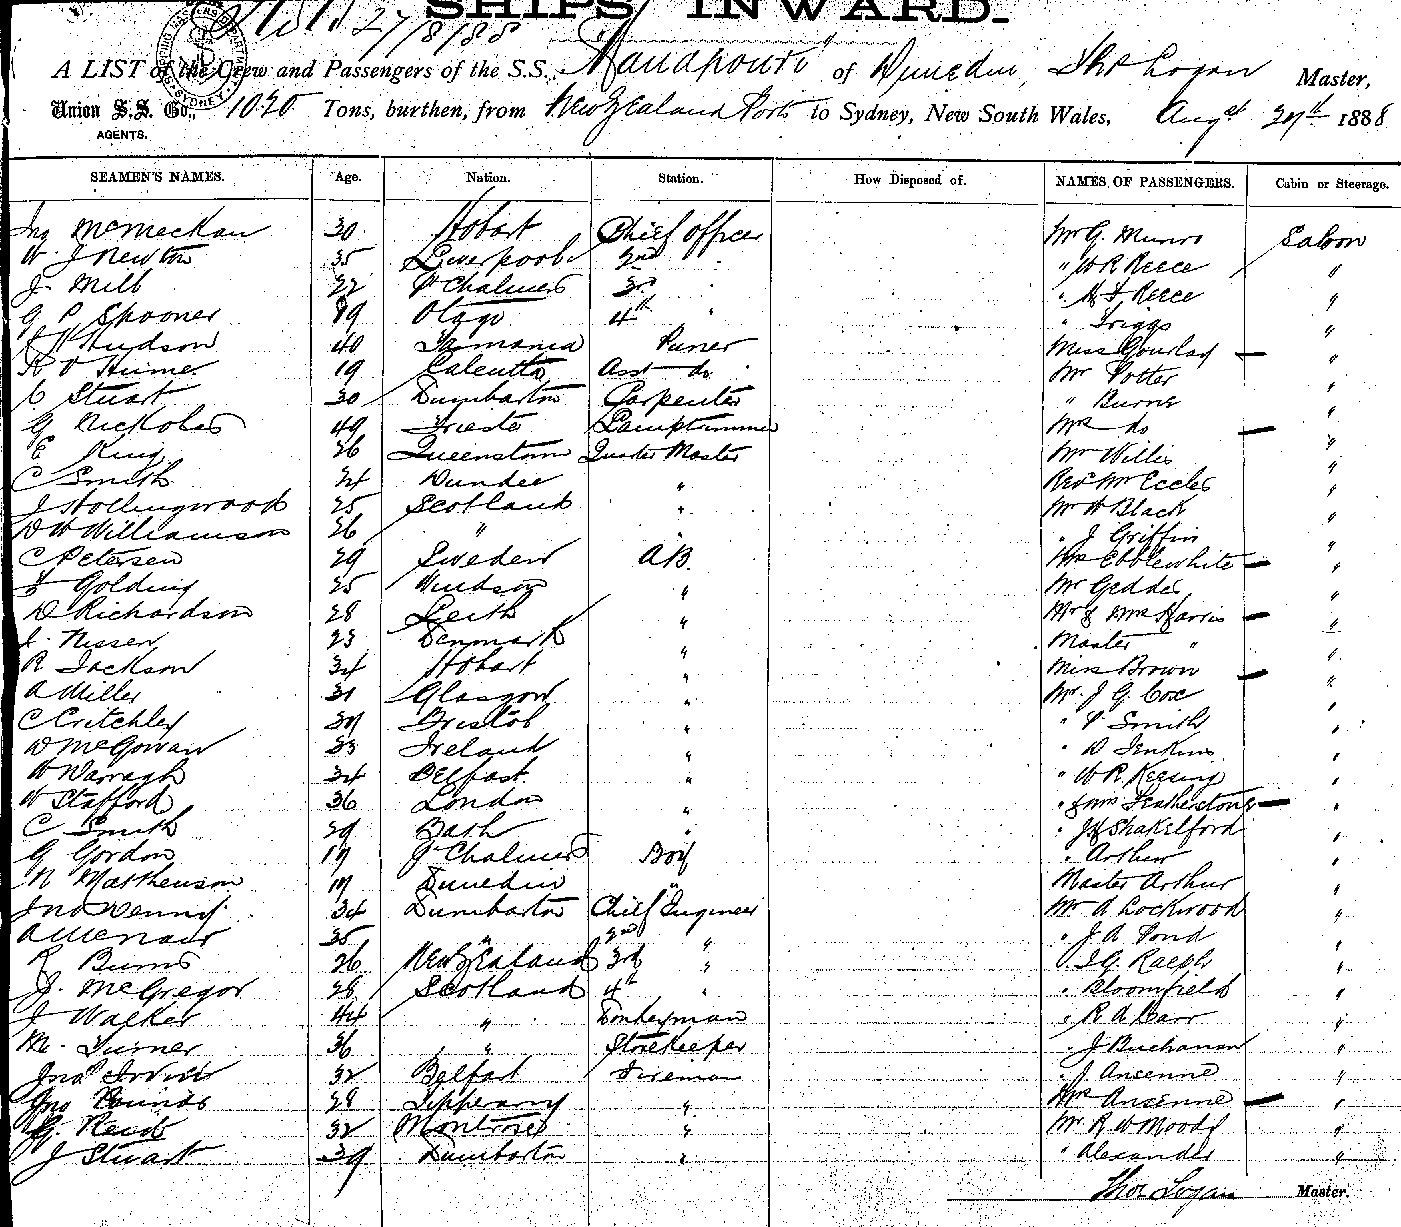 SHIPS INWARD.
27/8/88
A LIST of the Crew and Passengers of the S.S. "Manapouri" of Dunedin, Thos Logan Master,
Union S.S. Co., 1020 Tons, burthen, from New Zealand Ports to Sydney, New South Wales, Augst 27th 1888
AGENTS.
SEAMEN'S NAMES. Age. Nation. Station. How Disposed of. NAMES OF PASSENGERS. Cabin or Steerage.
Jno McMeckan 30 Hobart Chief Officer Mr G. Munro Saloon
W J Newton 35 Liverpool 2nd " W R Reece "
J. Mill 22 Pt Chalmers 3rd " " Reece "
G P Spooner 19 Otago 4th " " Triggs "
Hudson 40 Tasmania Purser Miss Gourlay "
Hume 19 Calcutta Asst do Mr Potter "
C Stuart 30 Dumbarton Carpenter " Burns "
G Nickolas 49 Trieste Lamptrimmer Mrs do "
E King 26 Queenstown Quarter Master Mr Willis "
C Smith 24 Dundee " Revd Mr Eccles "
J Hollingwood 25 Scotland " Mr W Black "
D W Williamson 26 " " J Griffin "
C Petersen 29 Sweden A.B. Mrs Ebblewhite "
F Golding 25 Windsor " Mr Geddes "
D Richardson 28 Leith " Mr & Mrs Harris "
J. Nissen 23 Denmark " Master " "
R Jackson 34 Hobart " Miss Brown "
A Miller 31 Glasgow " Mr. J. G. Cox "
C Critchley 37 Bristol " " P Smith "
D McGowan 33 Ireland " " D Jenkins "
W Warragh 34 Belfast " " W R. Keesing "
W Stafford 36 London " " & Mrs Featherstone "
C Smith 29 Bath " " Shakelford "
G Gordon 17 Pt Chalmers Boy " Arthur "
N Matthewson 17 Dunedin " Master Arthur "
Jno Denny 34 Dumbarton Chief Engineer Mr A Lockwood "
A McNair 35 " 2nd " " J A Pond "
R Burns 26 New Zealand 3rd " Ralph "
J. McGregor 28 Scotland 4th " " Bloomfield "
J Walker 44 " Donkeyman " R A Carr "
M. Turner 36 " Storekeeper " J Buchanan "
Jno Irvine 32 Belfast Fireman " J Ansenne "
Jno Pounds 28 Tipperary " Mrs Ansenne "
G Read 32 Montrose " Mr R W Moody "
J Stuart 39 Dumbarton " " Alexander "
Thos Logan Master.